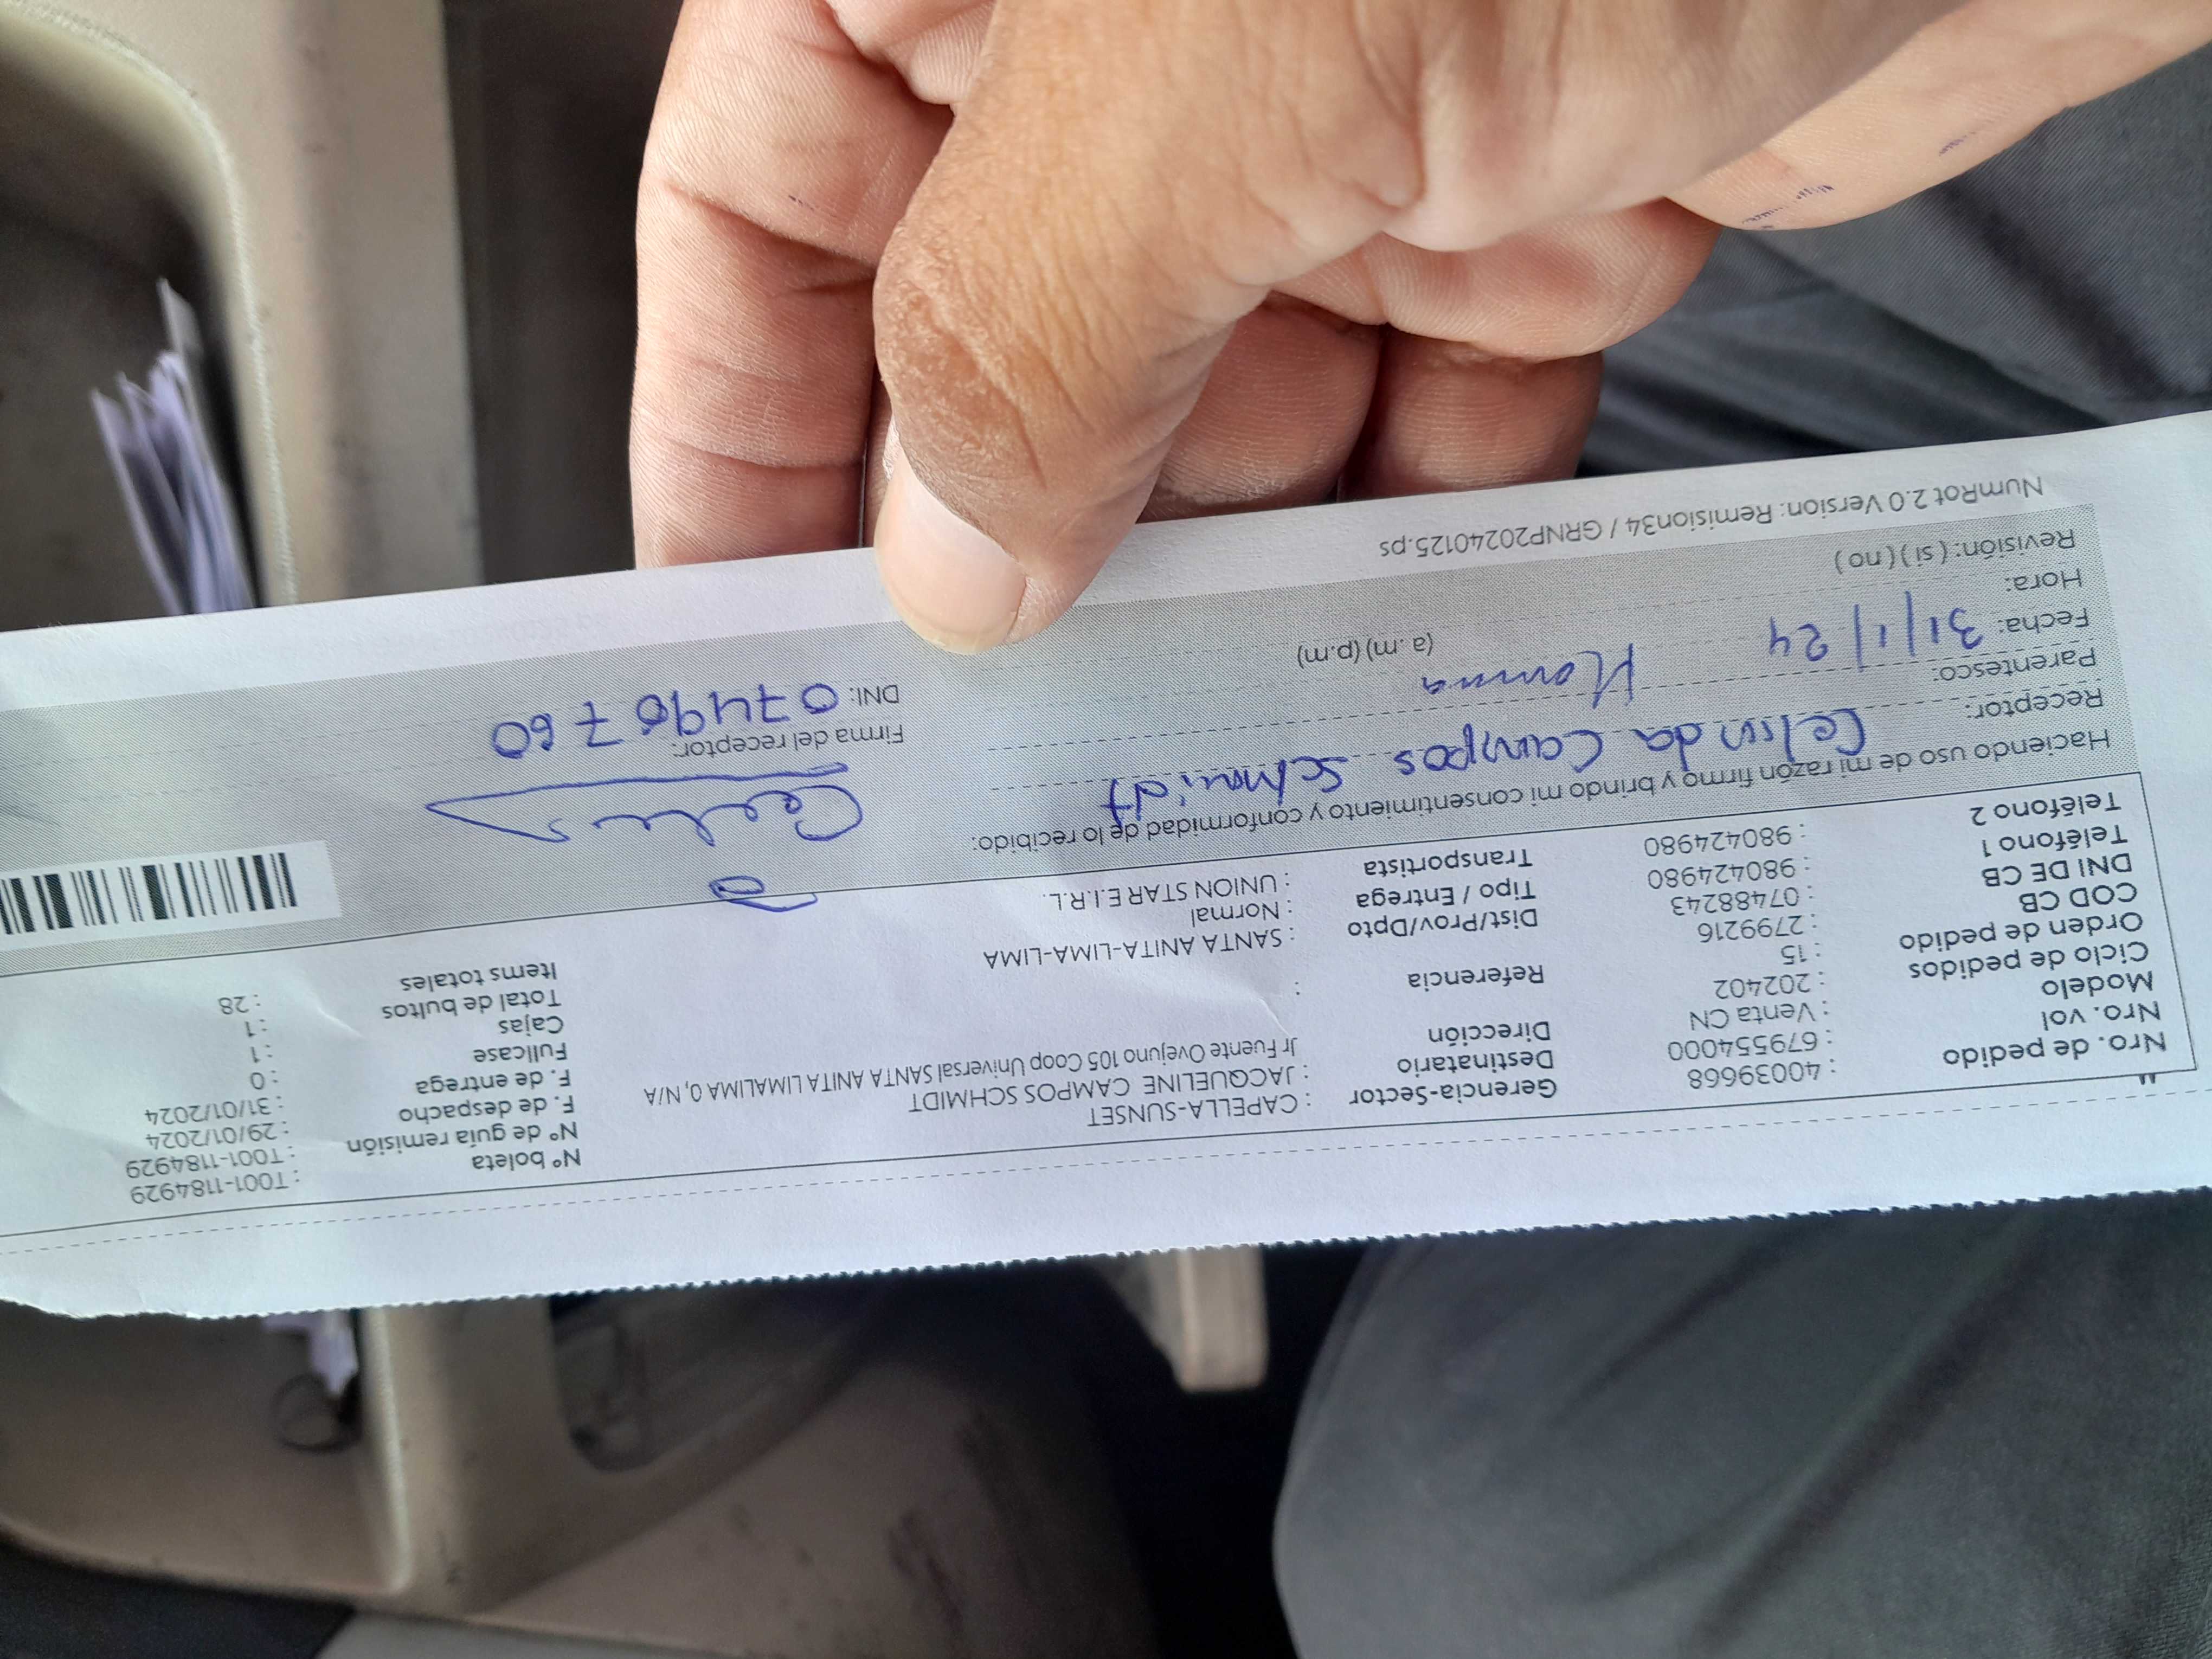 Nro. de pedido : 40039668
Nro. vol : 679554000
Modelo : Venta CN
Ciclo de pedidos : 202402
Orden de pedido : 15
COD CB : 2799216
DNI DE CB : 07488243
Teléfono 1 : 980424980
Teléfono 2 : 980424980
Gerencia-Sector : CAPELLA-SUNSET
Destinatario : JACQUELINE CAMPOS SCHMIDT
Dirección : Jr Fuente Ovejuno 105 Coop Universal SANTA ANITA LIMALIMA 0, N/A
Referencia :
Dist/Prov/Dpto : SANTA ANITA-LIMA-LIMA
Tipo / Entrega : Normal
Transportista : UNION STAR E.I.R.L.
Nº boleta : T001-1184929
Nº de guía remisión : T001-1184929
F. de despacho : 29/01/2024
F. de entrega : 31/01/2024
Fullcase : 0
Cajas : 1
Total de bultos : 1
Items totales : 28
Haciendo uso de mi razón firmo y brindo mi consentimiento y conformidad de lo recibido:
Receptor: Celinda Campos Schmidt
Parentesco:
Fecha: 31/1/24
Hora: (a. m) (p.m)
Revisión: ( si ) ( no )
Firma del receptor:
DNI: 07490760
NumRot 2.0 Version: Remision34 / GRNP20240125.ps